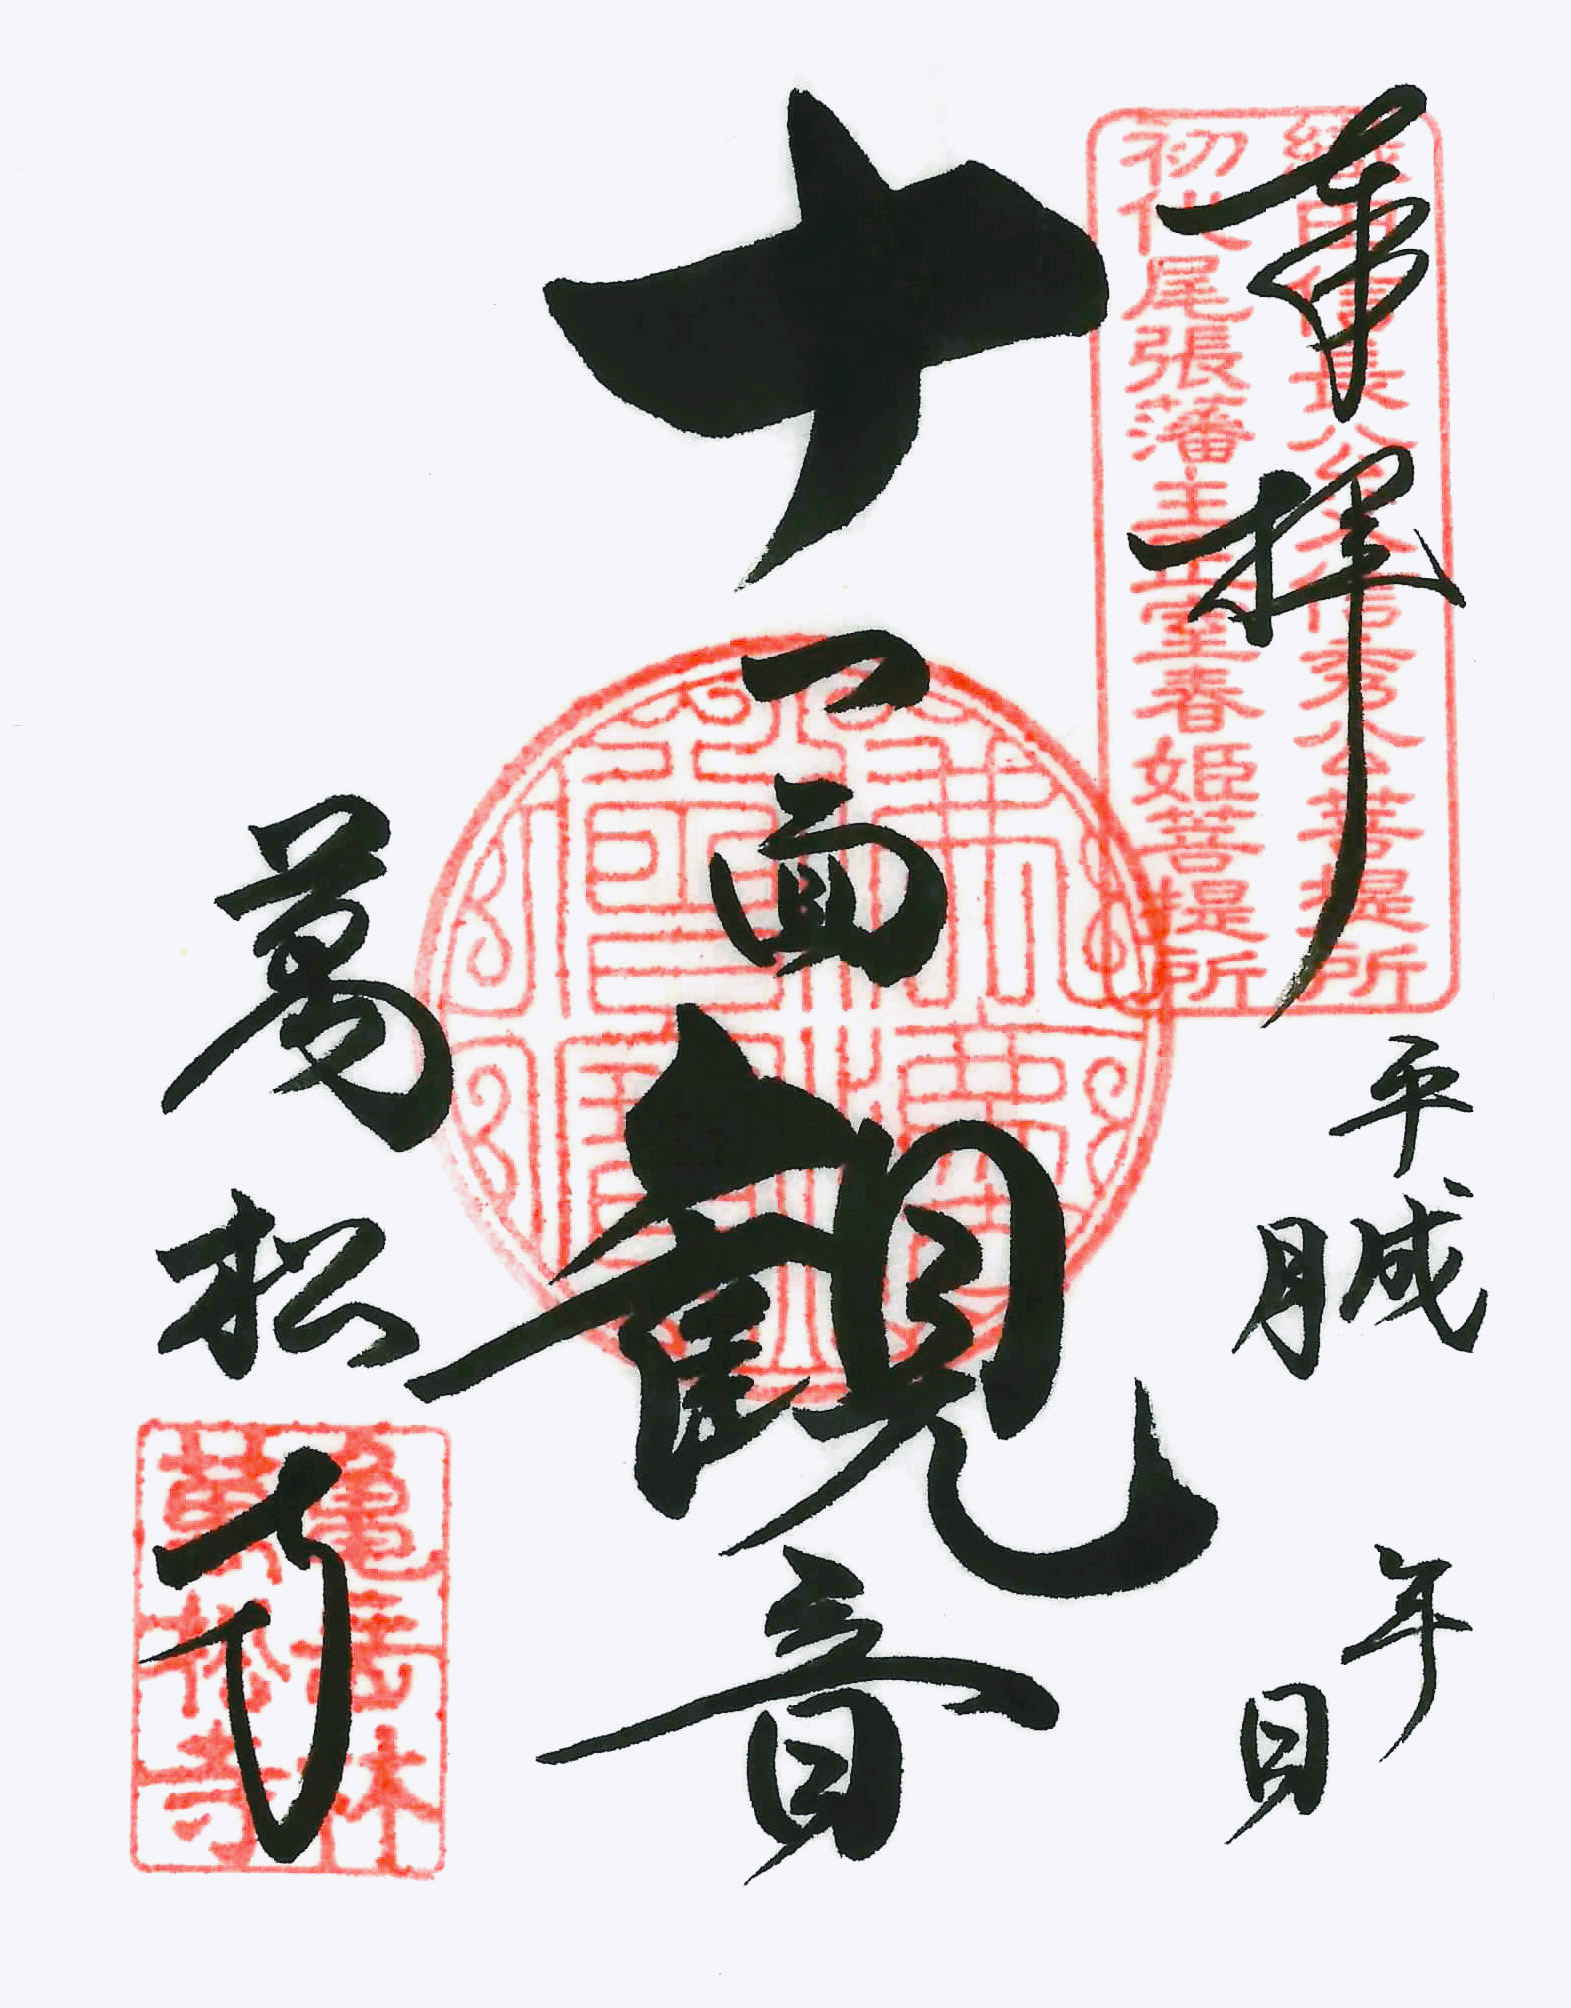 奉拝
織田信長公父信秀公菩提所
初代尾張藩主正室春姫菩提所
平成 年
月 日
十一面観音
萬松寺
亀岳林
萬松寺